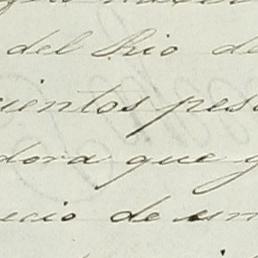 del Rio de
cientos pes
dora que g
ecio de un